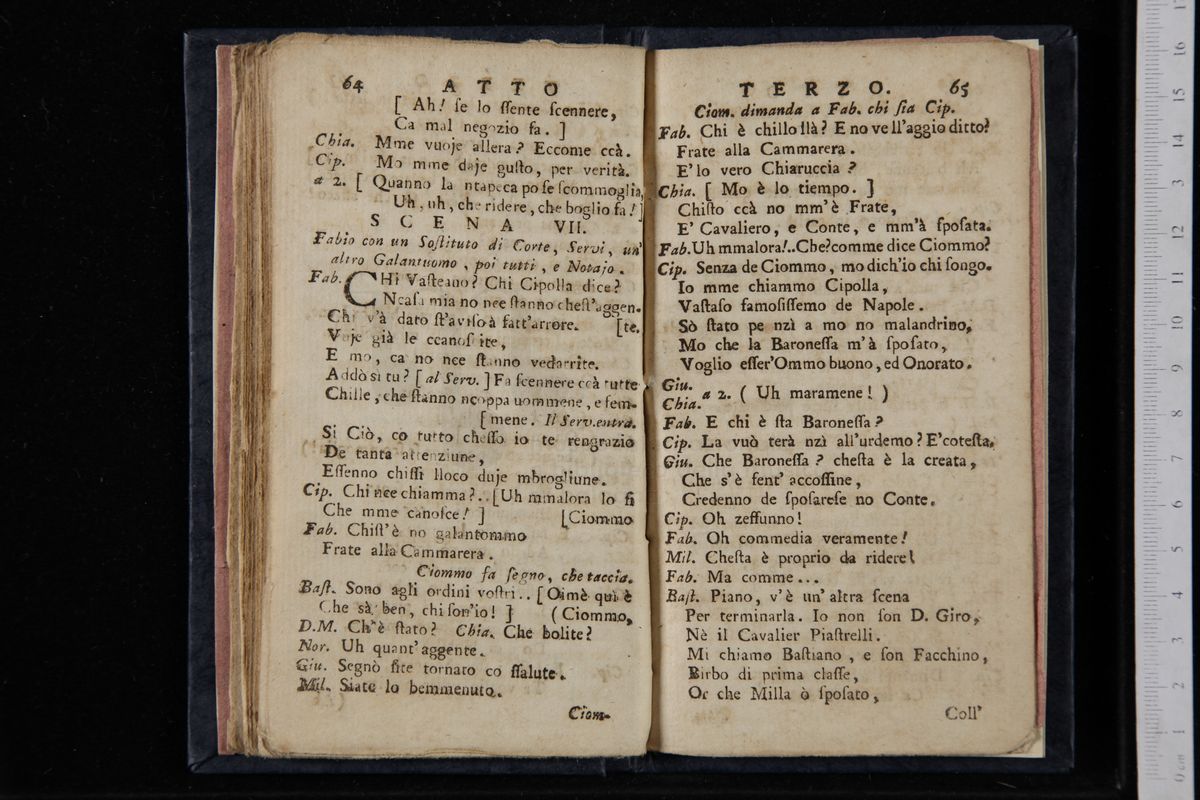 64 ATTO
[ Ah! ſe lo ſſente ſcennere,
Ca mal negozio fa. ]
Chia. Mme vuoje allera? Eccome ccà.
Cip. Mo mme daje guſto, per verità.
a 2. [ Quanno la ntapeca po ſe ſcommoglia,
Uh, uh, che ridere, che boglio fa! ]
SCENA VII.
Fabio con un Soſtituto di Corte, Servi, un'
altro Galantuomo, poi tutti, e Notajo.
Fab. CHi Vaſteano? Chi Cipolla dice?
Ncaſa mia no nce ſtanno cheſt'aggen-
Chi v'à dato ſt'aviſo à fatt'arrore. [te.
Vuje già le ccanoſcite,
E mo, ca no nce ſtanno vedarrite.
Addò sì tu? [ al Serv. ] Fa ſcennere ccà tutte
Chille, che ſtanno ncoppa uommene, e fem-
[ mene. Il Serv. entra.
Si Ciò, co tutto cheſſo io te rengrazio
De tanta attenziune,
Eſſenno chiſſi lloco duje mbrogliune.
Cip. Chi nce chiamma?.. [Uh mmalora lo ſi
Che mme canoſce! ] [Ciommo
Fab. Chiſt'è no galantommo
Frate alla Cammarera.
Ciommo fa ſegno, che taccia.
Baſt. Sono agli ordini voſtri.. [ Oimè qui è
Che sà ben, chi ſon'io! ] ( Ciommo,
D.M. Ch'è ſtato? Chia. Che bolite?
Nor. Uh quant'aggente.
Giu. Segnò ſite tornato co ſſalute.
Mil. Siate lo bemmenuto.
Ciom-
TERZO. 65
Ciom. dimanda a Fab. chi ſia Cip.
Fab. Chi è chillo llà? E no ve ll'aggio ditto?
Frate alla Cammarera.
E' lo vero Chiaruccia?
Chia. [ Mo è lo tiempo. ]
Chiſto ccà no mm'è Frate,
E' Cavaliero, e Conte, e mm'à ſpoſata.
Fab. Uh mmalora!..Che? comme dice Ciommo?
Cip. Senza de Ciommo, mo dich'io chi ſongo.
Io mme chiammo Cipolla,
Vaſtaſo famoſiſſemo de Napole.
Sò ſtato pe nzì a mo no malandrino,
Mo che la Baroneſſa m'à ſpoſato,
Voglio eſſer'Ommo buono, ed Onorato.
Giu.
Chia. a 2. ( Uh maramene! )
Fab. E chi è ſta Baroneſſa?
Cip. La vuò terà nzì all'urdemo? E' coteſta.
Giu. Che Baroneſſa? cheſta è la creata,
Che s'è fent' accoſſine,
Credenno de ſpoſareſe no Conte.
Cip. Oh zeffunno!
Fab. Oh commedia veramente!
Mil. Cheſta è proprio da ridere!
Fab. Ma comme...
Baſt. Piano, v'è un'altra ſcena
Per terminarla. Io non ſon D. Giro,
Nè il Cavalier Piaſtrelli.
Mi chiamo Baſtiano, e ſon Facchino,
Birbo di prima claſſe,
Or che Milla ò ſpoſato,
Coll'
0 cm 1 2 3 4 5 6 7 8 9 10 11 12 13 14 15 16 17